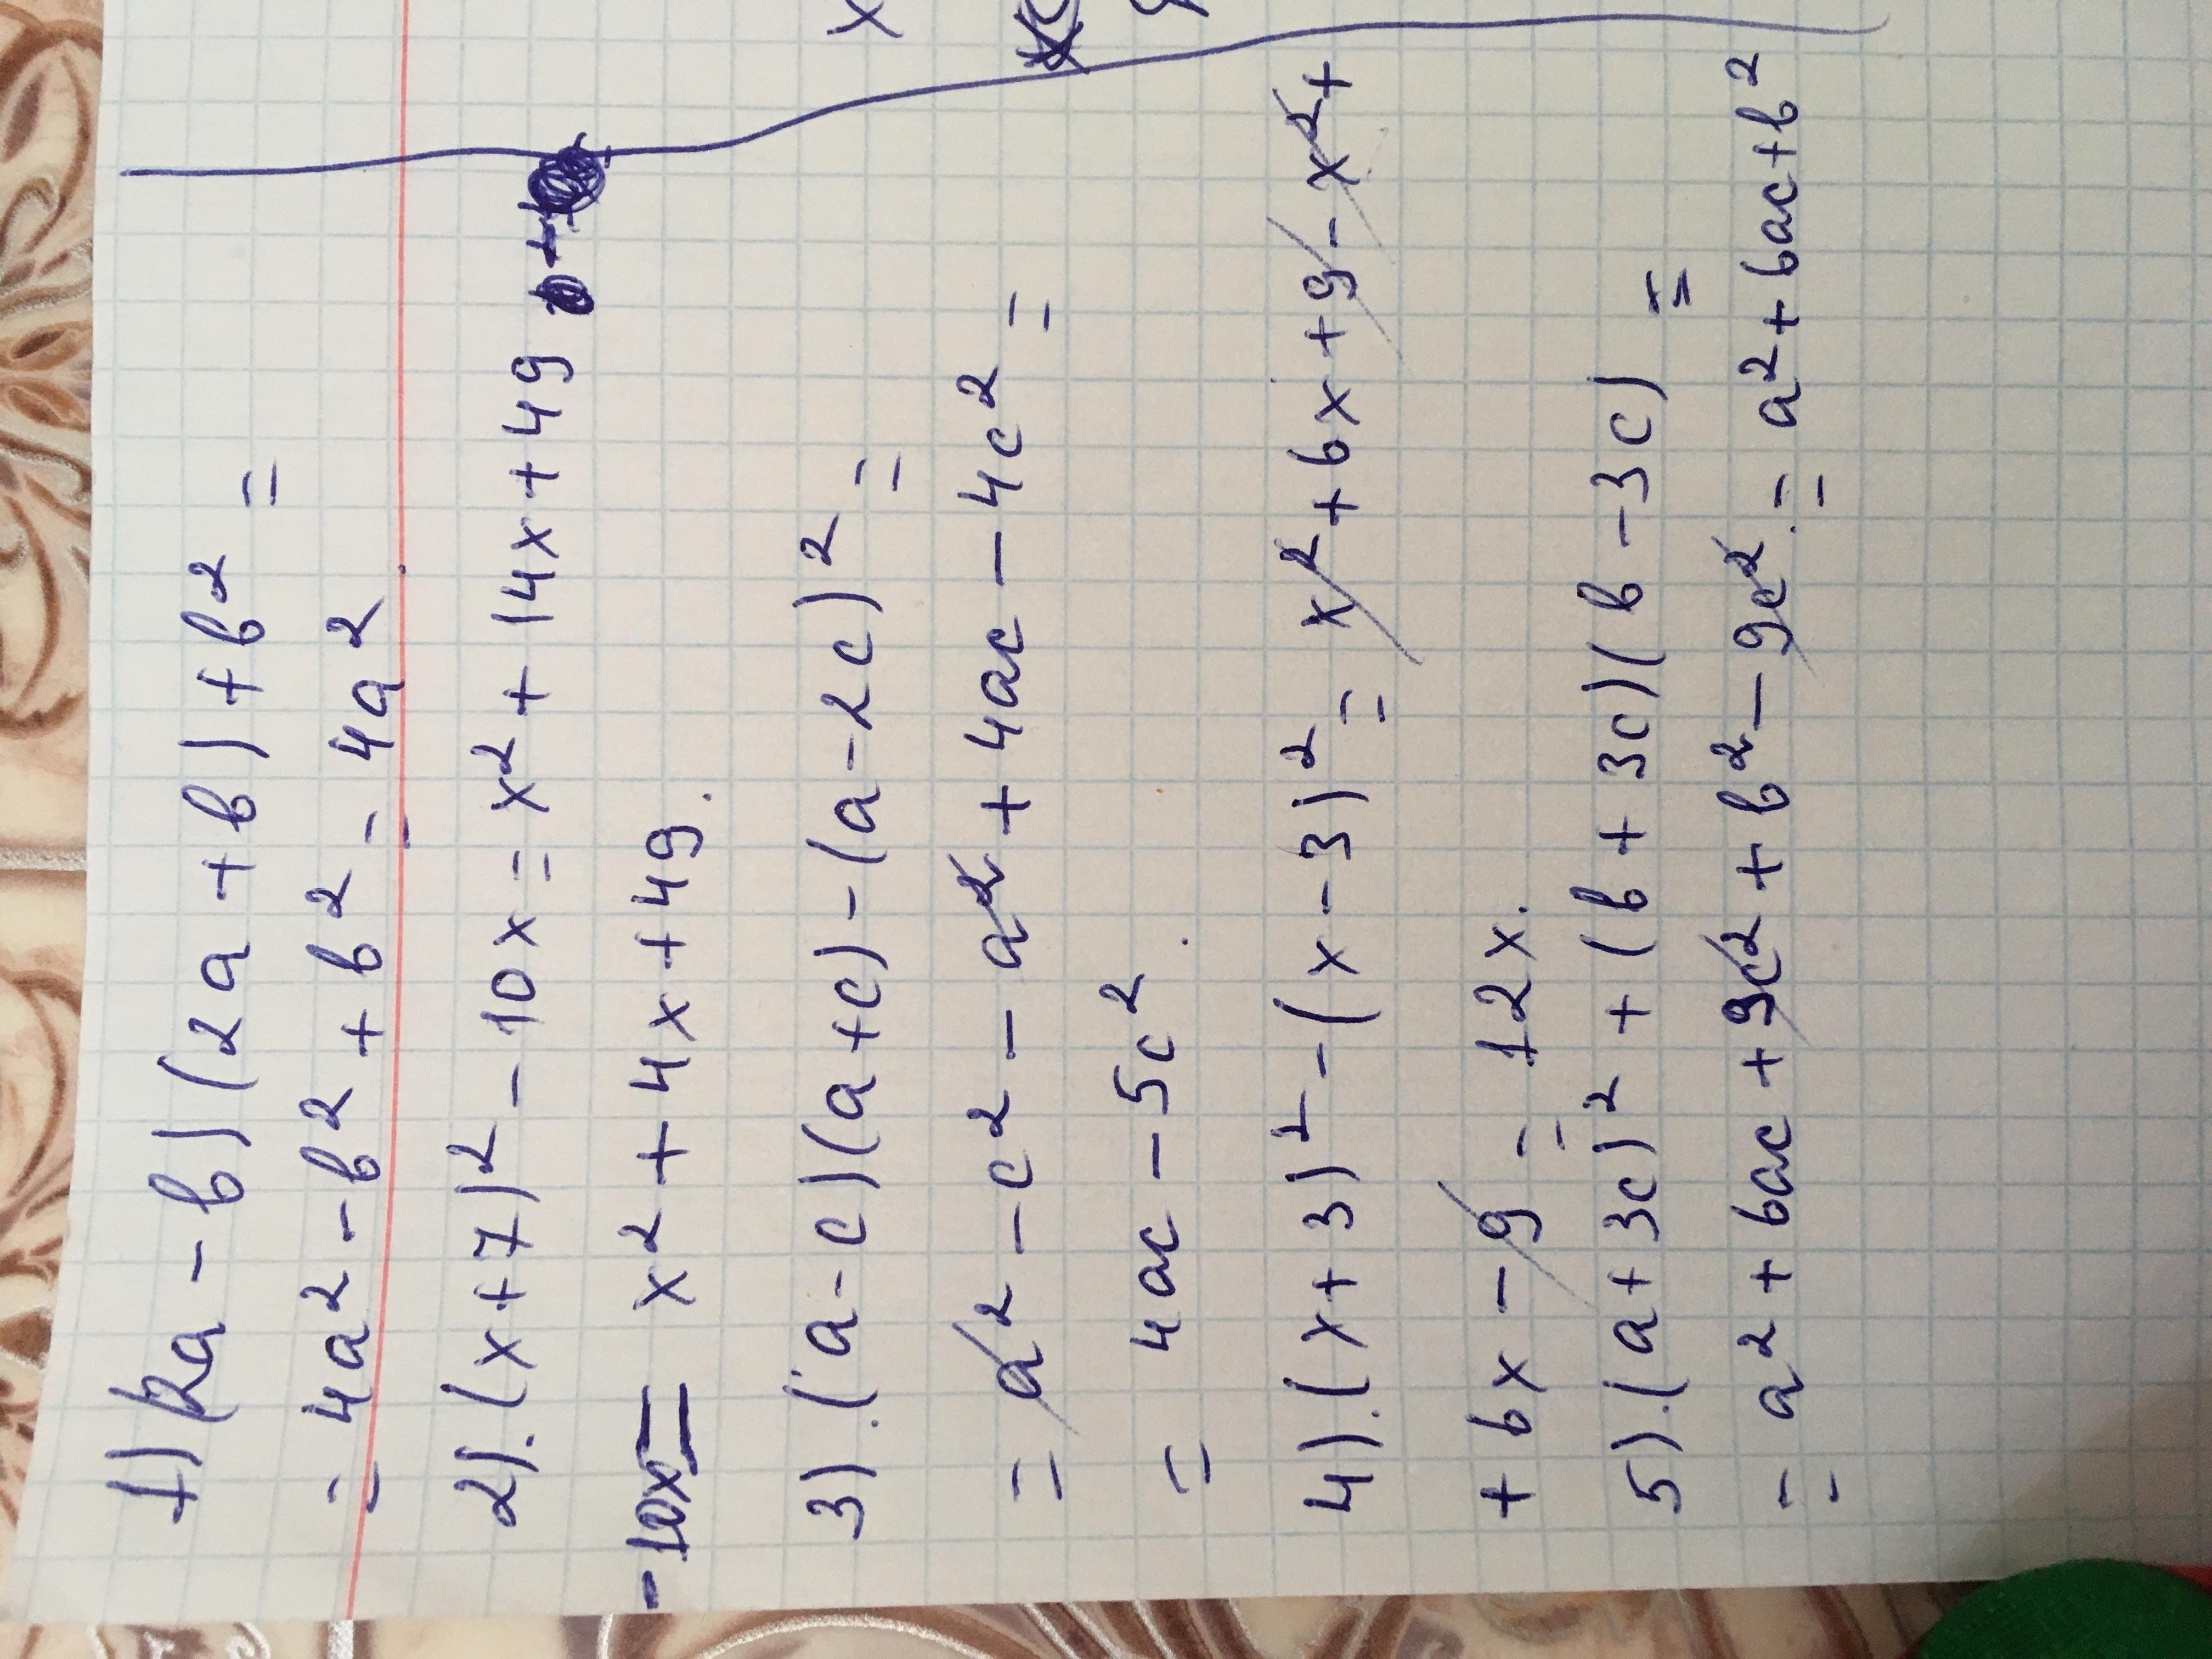 1) (2a - b)(2a + b) + b² =
= 4a² - b² + b² = 4a²
2). (x + 7)² - 10x = x² + 14x + 49
- 10x = x² + 4x + 49.
3). (a - c)(a + c) - (a - 2c)² =
= a² - c² - a² + 4ac - 4c² =
= 4ac - 5c².
4). (x + 3)² - (x - 3)² = x² + 6x + 9 - x² +
+ 6x - 9 = 12x.
5). (a + 3c)² + (b + 3c)(b - 3c) =
= a² + 6ac + 9c² + b² - 9c² = a² + 6ac + b²
x